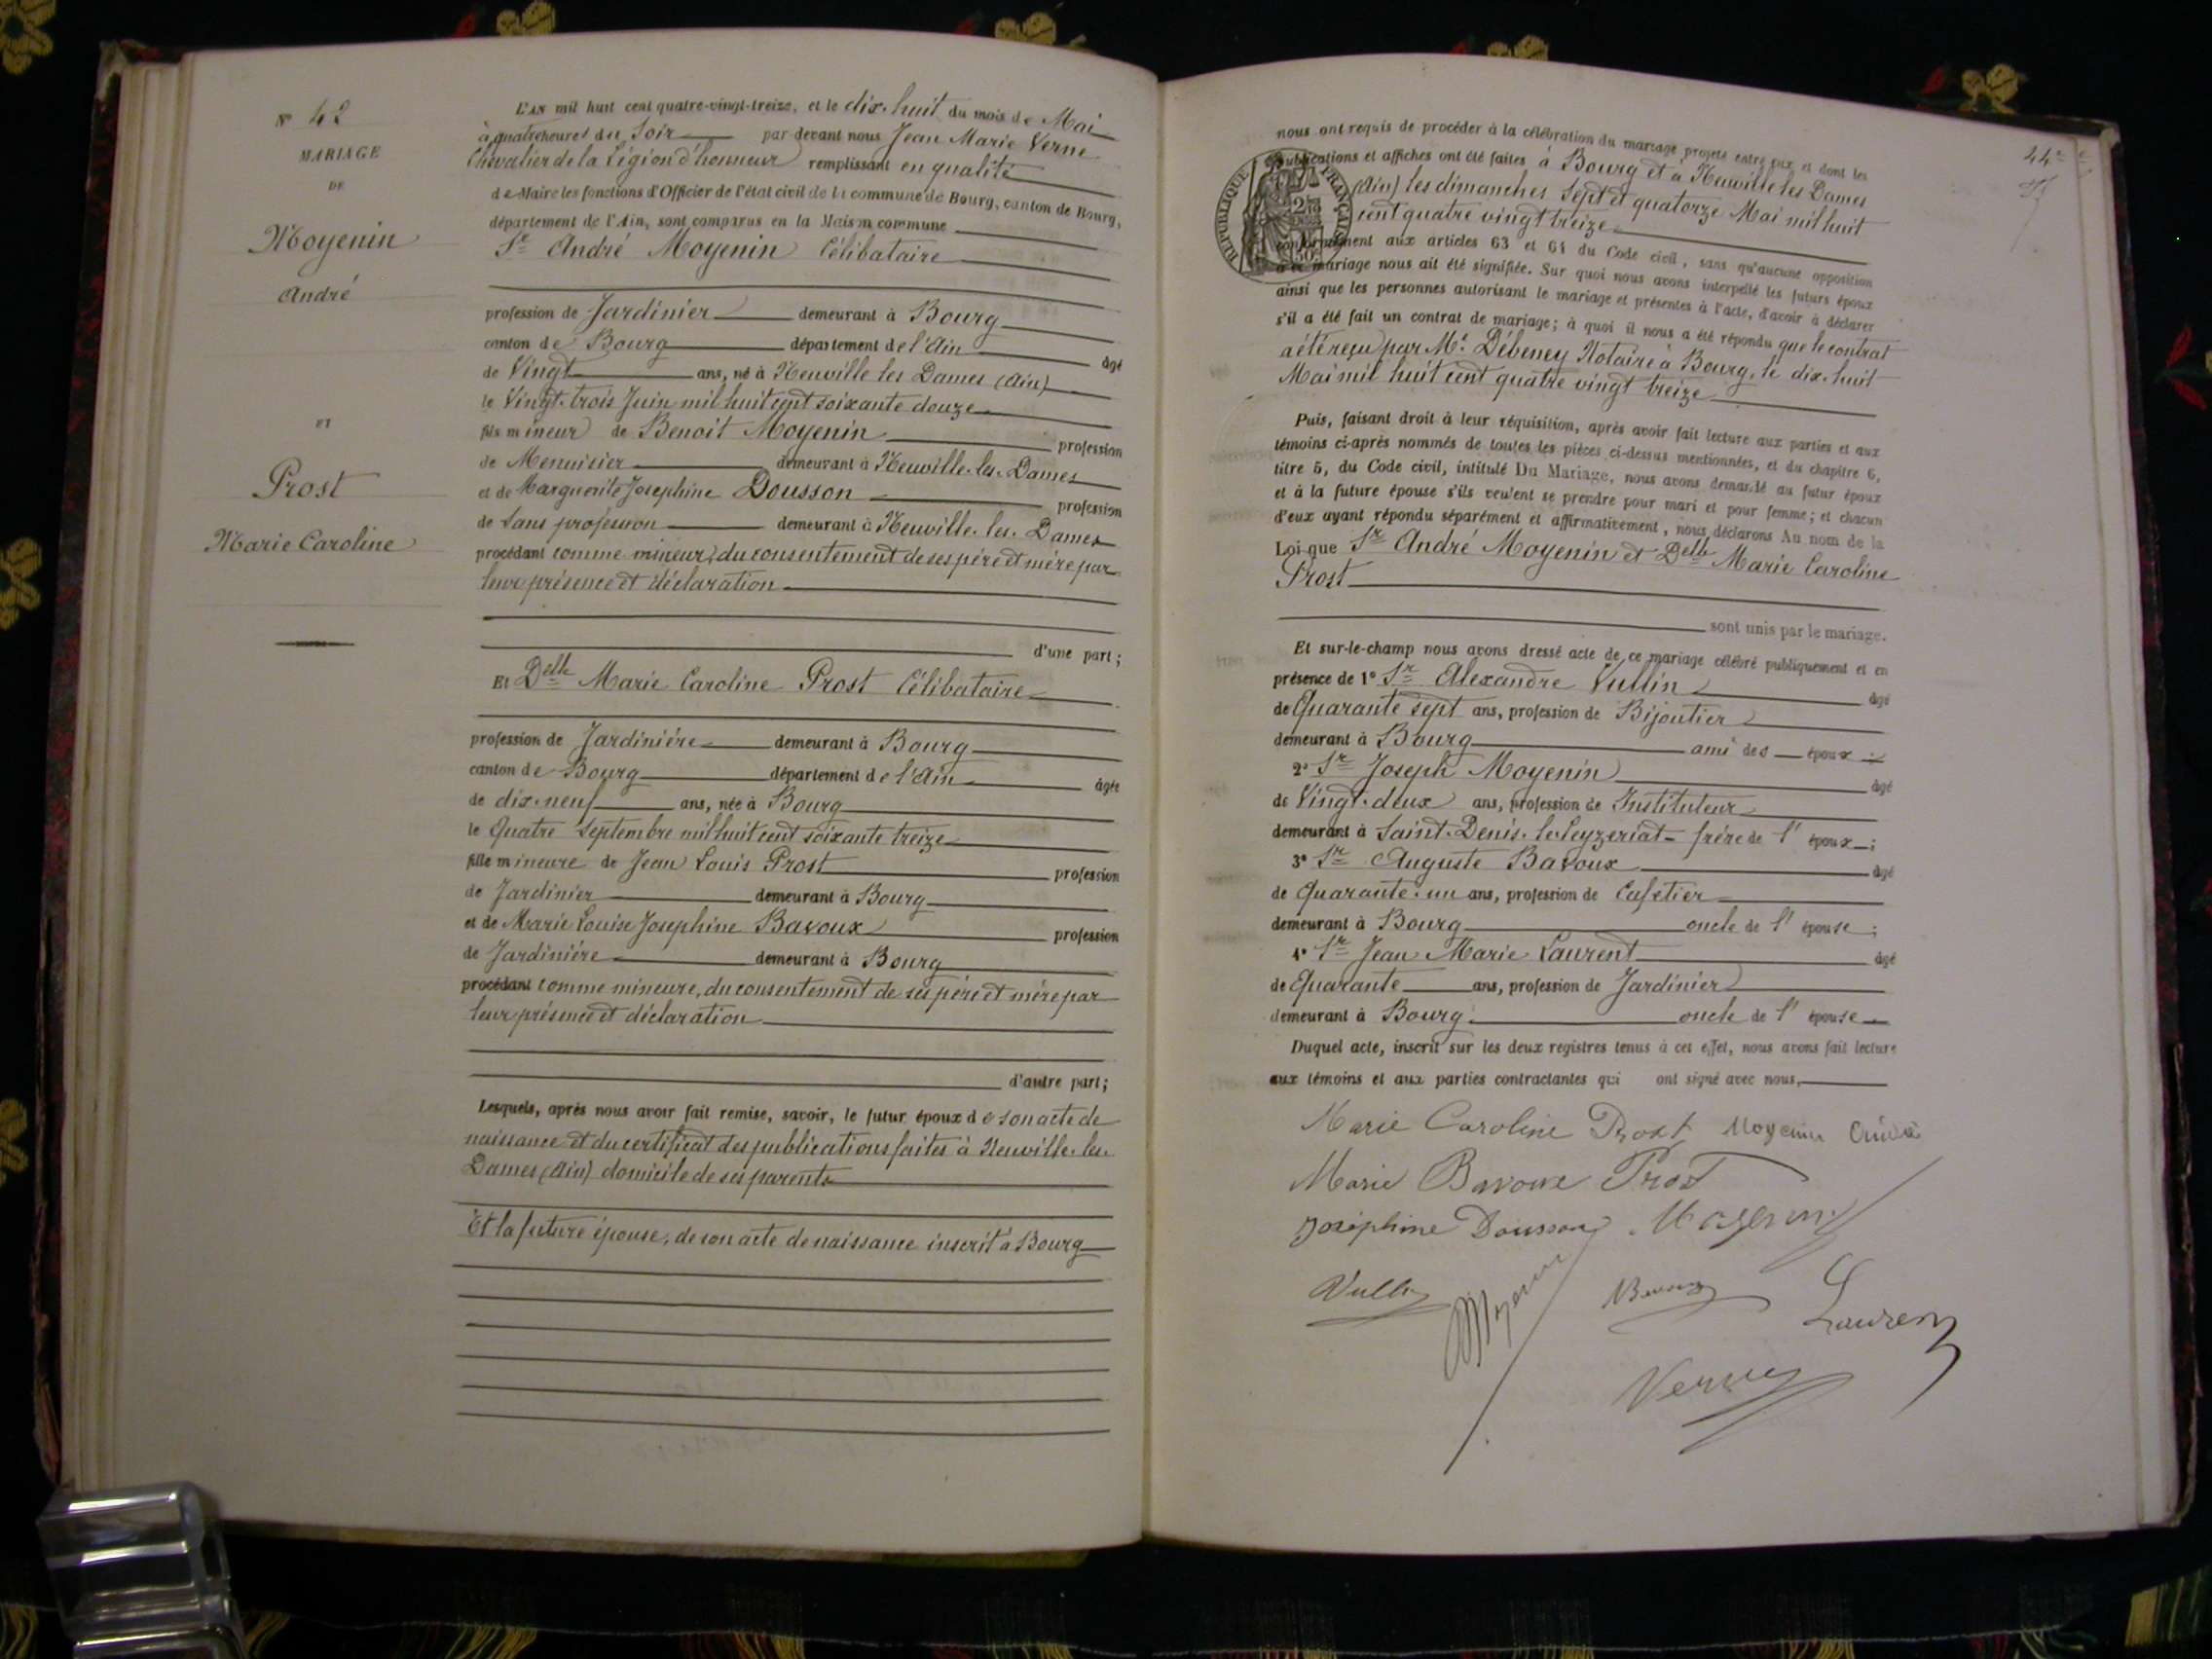 N° 42
MARIAGE
DE
Moyenin
André
ET
Prost
Marie Caroline
L'AN mil huit cent quatre-vingt-treize, et le dix-huit du mois de Mai
à quatre heures du Soir par devant nous Jean Marie Verne
Chevalier de la Légion d'honneur remplissant en qualité
de Maire les fonctions d'Officier de l'état civil de la commune de Bourg, canton de Bourg,
département de l'Ain, sont comparus en la Maison commune
Sr André Moyenin Célibataire
profession de Jardinier demeurant à Bourg
canton de Bourg département de l'Ain âgé
de Vingt ans, né à Neuville les Dames (Ain)
le Vingt-trois Juin mil huit cent soixante douze
fils mineur de Benoit Moyenin profession
de Menuisier demeurant à Neuville-les-Dames
et de Marguerite Josephine Dousson profession
de Sans profession demeurant à Neuville-les-Dames
procédant comme mineur, du consentement de ses père et mère par
leur présence et déclaration
d'une part;
Et Delle Marie Caroline Prost Célibataire
profession de Jardinière demeurant à Bourg
canton de Bourg département de l'Ain âgée
de dix-neuf ans, née à Bourg
le Quatre Septembre mil huit cent soixante treize
fille mineure de Jean Louis Prost profession
de Jardinier demeurant à Bourg
et de Marie Louise Josephine Bavoux profession
de Jardinière demeurant à Bourg
procédant comme mineure, du consentement de ses père et mère par
leur présence et déclaration
d'autre part;
Lesquels, après nous avoir fait remise, savoir, le futur époux de son acte de
naissance et du certificat des publications faites à Neuville-les-
Dames (Ain) domicile de ses parents
Et la future épouse, de son acte de naissance inscrit à Bourg
44e
nous ont requis de procéder à la célébration du mariage projeté entre eux et dont les
publications et affiches ont été faites à Bourg et à Neuville les Dames
(Ain) les dimanches Sept et quatorze Mai mil huit
cent quatre vingt treize
conformément aux articles 63 et 64 du Code civil, sans qu'aucune opposition
à ce mariage nous ait été signifiée. Sur quoi nous avons interpellé les futurs époux
ainsi que les personnes autorisant le mariage et présentes à l'acte, d'avoir à déclarer
s'il a été fait un contrat de mariage; à quoi il nous a été répondu que le contrat
a été reçu par Me Débeney Notaire à Bourg, le dix-huit
Mai mil huit cent quatre vingt treize
REPUBLIQUE FRANÇAISE
Puis, faisant droit à leur réquisition, après avoir fait lecture aux parties et aux
témoins ci-après nommés de toutes les pièces ci-dessus mentionnées, et du chapitre 6,
titre 5, du Code civil, intitulé Du Mariage, nous avons demandé au futur époux
et à la future épouse s'ils veulent se prendre pour mari et pour femme; et chacun
d'eux ayant répondu séparément et affirmativement, nous déclarons Au nom de la
Loi que Sr André Moyenin et Delle Marie Caroline
Prost
sont unis par le mariage.
Et sur-le-champ nous avons dressé acte de ce mariage célébré publiquement et en
présence de 1° Sr Alexandre Vullin âgé
de Quarante sept ans, profession de Bijoutier
demeurant à Bourg ami des époux;
2° Sr Joseph Moyenin âgé
de Vingt-deux ans, profession de Instituteur
demeurant à Saint-Denis-le-Ceyzeriat frère de l'époux;
3° Sr Auguste Bavoux âgé
de Quarante-un ans, profession de Cafetier
demeurant à Bourg oncle de l'épouse;
4° Sr Jean Marie Laurent âgé
de Quarante ans, profession de Jardinier
demeurant à Bourg oncle de l'épouse
Duquel acte, inscrit sur les deux registres tenus à cet effet, nous avons fait lecture
aux témoins et aux parties contractantes qui ont signé avec nous,
Marie Caroline Prost Moyenin André
Marie Bavoux Prost
Joséphine Dousson Moyenin
Vullin Moyenin Bavoux Laurent
Verne